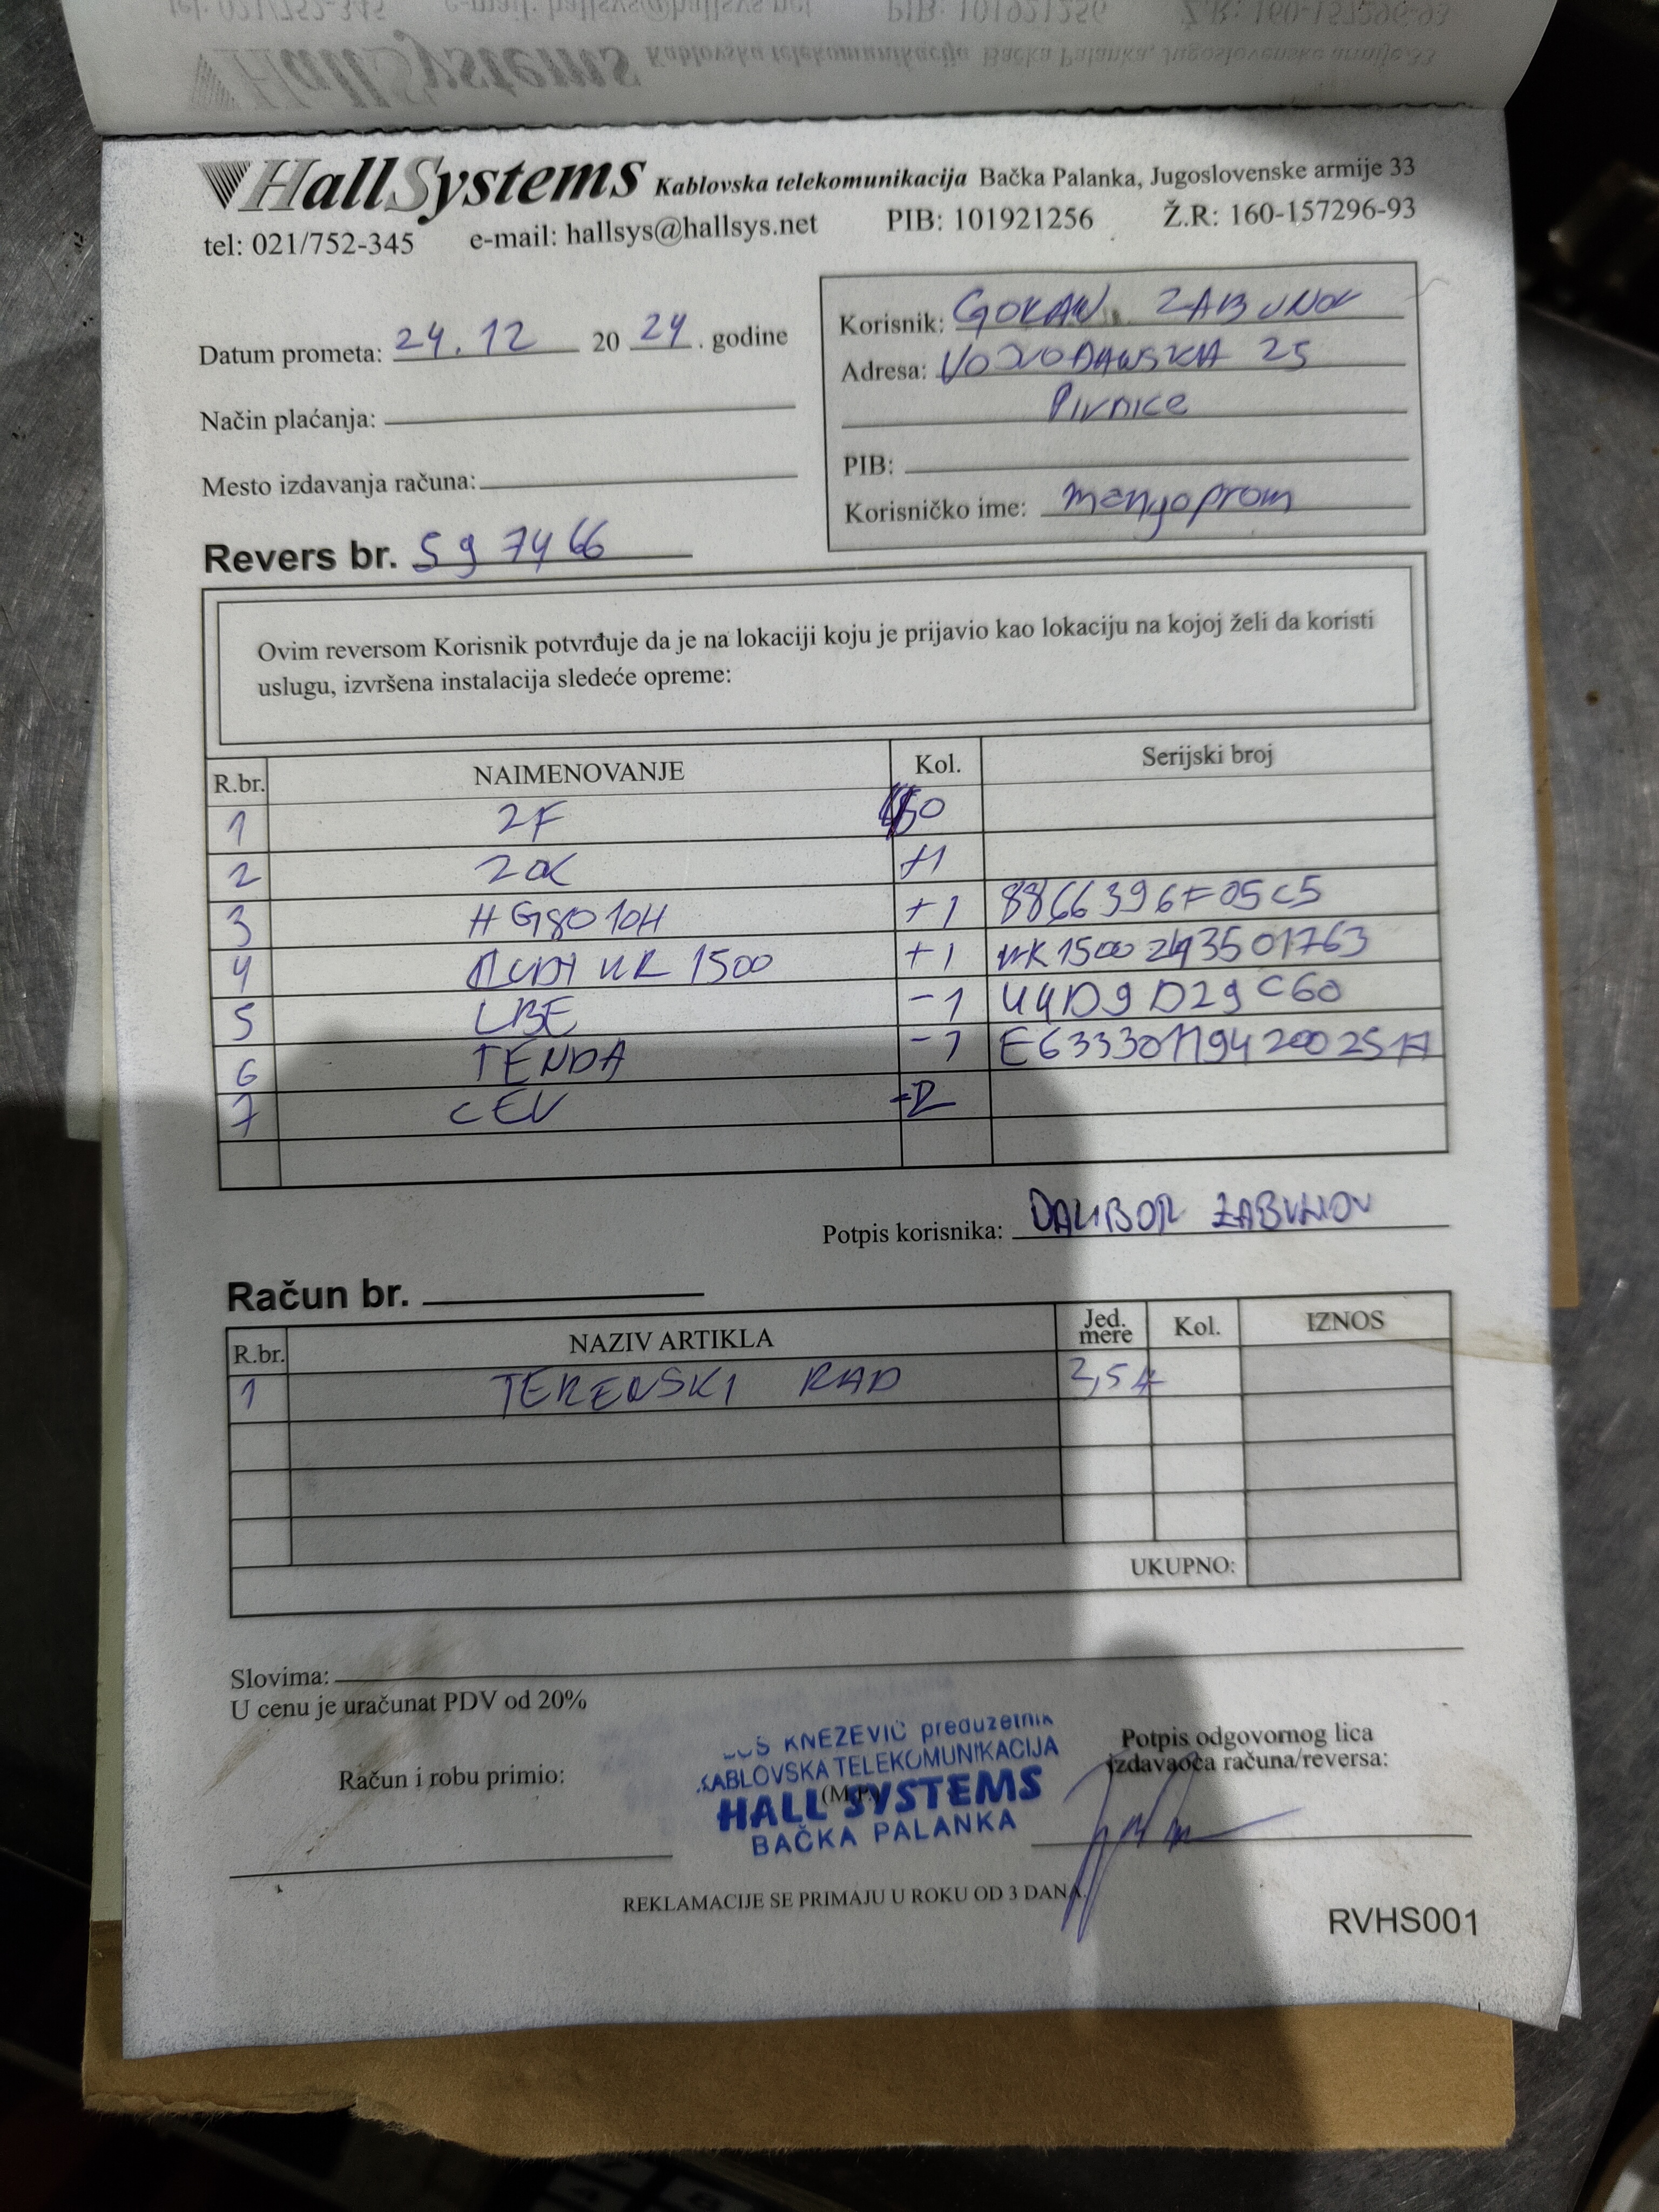 HallSystems Kablovska telekomunikacija Bačka Palanka, Jugoslovenske armije 33
tel: 021/752-345 e-mail: hallsys@hallsys.net PIB: 101921256 Ž.R: 160-157296-93
Datum prometa: 24.12 20 24. godine
Način plaćanja:
Mesto izdavanja računa:
Revers br. 597466
Korisnik: GORAN ZABUNOV
Adresa: VOJVOĐANSKA 25
Pivnice
PIB:
Korisničko ime: mangoprom
Ovim reversom Korisnik potvrđuje da je na lokaciji koju je prijavio kao lokaciju na kojoj želi da koristi
uslugu, izvršena instalacija sledeće opreme:
R.br. NAIMENOVANJE Kol. Serijski broj
1 2F
2 ZOK +1
3 HG8010H +1 8866396F05C5
4 WR 1500 +1
5 LBE -1
6 TENDA -1
7 CEV
Potpis korisnika: DALIBOR ZABUNOV
Račun br.
R.br. NAZIV ARTIKLA Jed. mere Kol. IZNOS
1 TERENSKI RAD 2,5
UKUPNO:
Slovima:
U cenu je uračunat PDV od 20%
Račun i robu primio:
KNEŽEVIĆ preduzetnik
KABLOVSKA TELEKOMUNIKACIJA
(M.P.)
HALL SYSTEMS
BAČKA PALANKA
Potpis odgovornog lica
izdavaoca računa/reversa:
REKLAMACIJE SE PRIMAJU U ROKU OD 3 DANA.
RVHS001